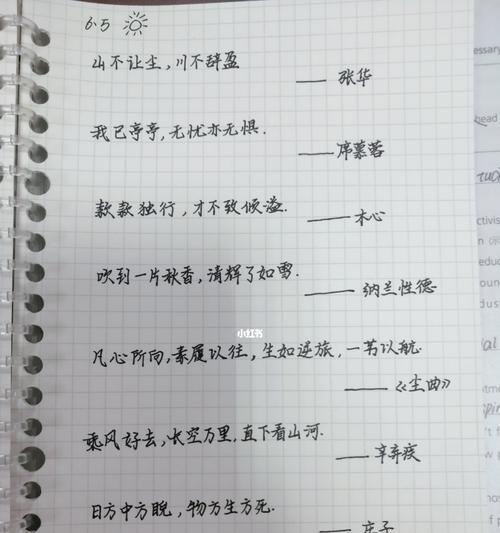 6.5
山不让尘，川不辞盈
——张华
我已亭亭，无忧亦无惧.
——席慕蓉
款款独行，才不致倾溢.
——木心
吹到一片秋香，清辉了如雪.
——纳兰性德
小红书
凡心所向，素履以往，生如逆旅，一苇以航.
——《尘曲》
乘风好去，长空万里，直下看山河.
——辛弃疾
日方中方睨，物方生方死.
——庄子
essary
head
tuck
ctivis
educ
oun
dus
al